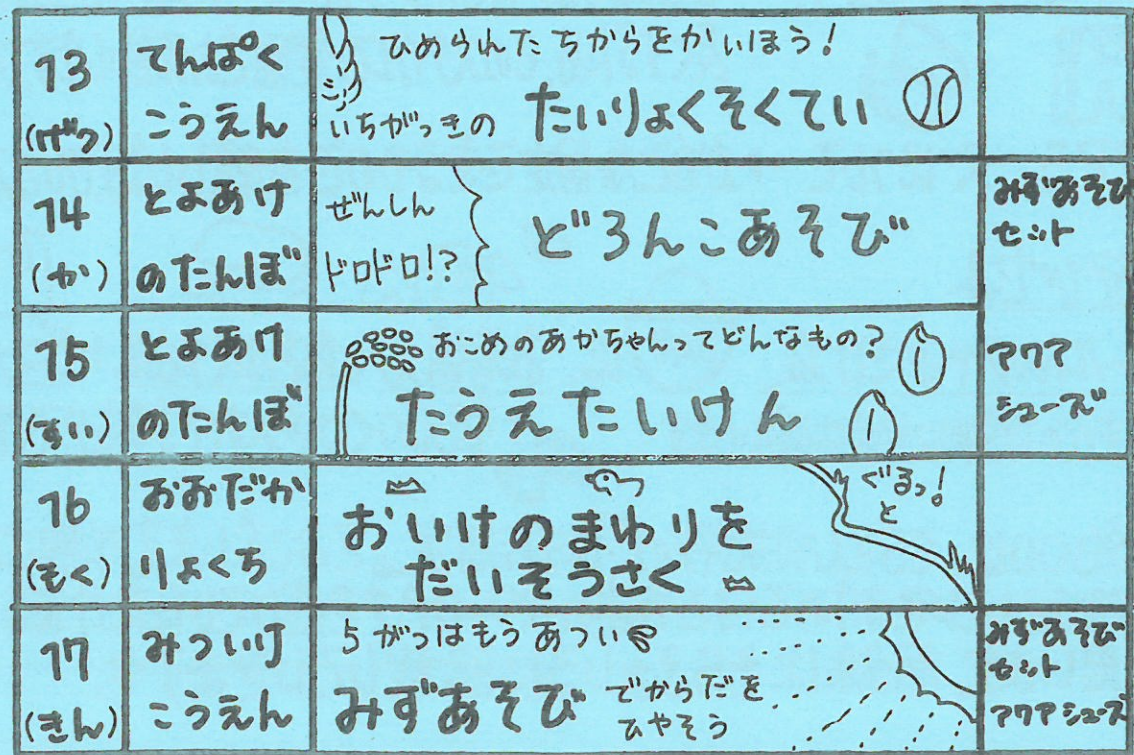 13
(げつ)
てんぱく
こうえん
ひめられたちからをかいほう!
いちがっきの たいりょくそくてい
14
(か)
とよあけ
のたんぼ
ぜんしん
ドロドロ!?
どろんこあそび
みずあそび
セット
15
(すい)
とよあけ
のたんぼ
おこめのあかちゃんってどんなもの?
たうえたいけん
アクア
シューズ
16
(もく)
おおだか
りょくち
おいけのまわりを
だいそうさく
ぐるっ!
と
17
(きん)
みついけ
こうえん
5がつはもうあつい
みずあそび でからだを
ひやそう
みずあそび
セット
アクアシューズ